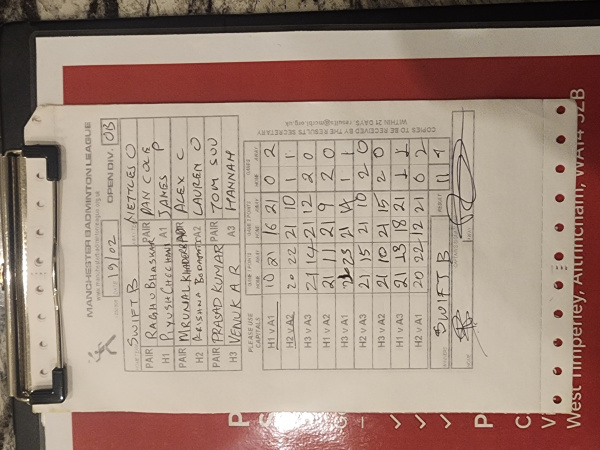 MANCHESTER BADMINTON LEAGUE
19/02 OPEN DIV. OB
SWIFT B NETTLES O
PAIR RAGHU BHASKAR PAIR DAN COLE
H1 PIYUSH A1 JAMES P
PAIR MRUNAL ALEX C
H2 KRISHNA A2 LAUREN O
PAIR PRASAD KUMAR PAIR TOM SOU
H3 VENUKA R A3 HANNAH
PLEASE USE CAPITALS
HOME AWAY HOME AWAY HOME AWAY
H1 V A1 10 21 16 21 0 2
H2 V A2 20 22 21 10 1 1
H3 V A3 21 14 21 12 2 0
H1 V A2 21 11 21 9 2 0
H3 V A1 23 21 14 1 1
H2 V A3 21 15 21 10 2 0
H3 V A2 21 10 21 15 2 0
H1 V A3 21 13 18 21 1 1
H2 V A1 20 22 12 21 0 2
SWIFT B RESULT 11 7
COPIES TO BE RECEIVED BY THE RESULTS SECRETARY
WITHIN 21 DAYS
West Timperley, Altrincham, WA14 5ZB